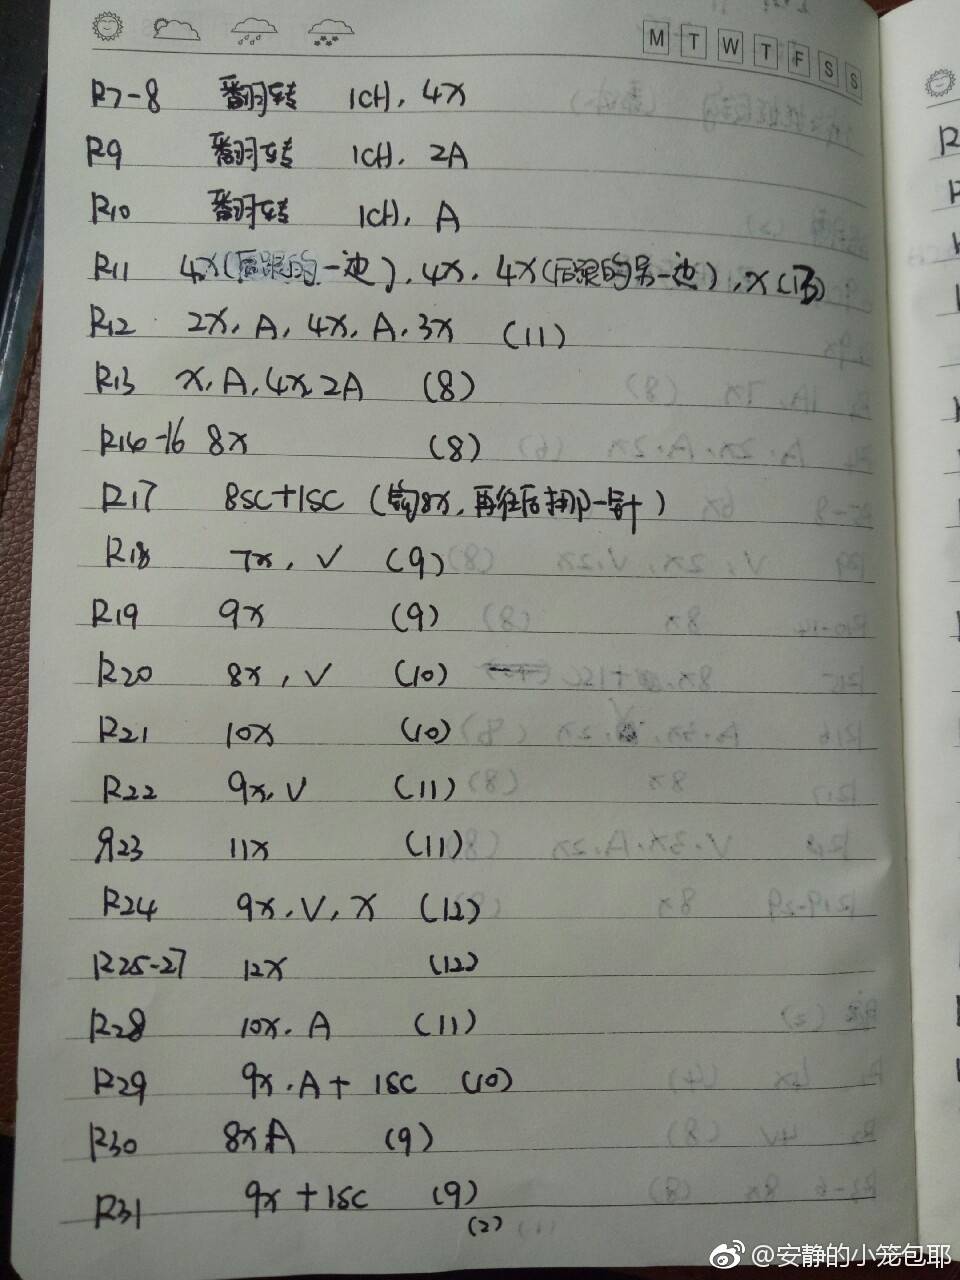 M T W T F S S
R7-8 翻转 1CH, 4X
R9 翻转 1CH, 2A
R10 翻转 1CH, A
R11 4X(后跟的一边), 4X, 4X(后跟的另一边), X (13)
R12 2X, A, 4X, A, 3X (11)
R13 X, A, 4X, 2A (8)
R14-16 8X (8)
R17 8SC+1SC (钩8X, 再往后挪一针)
R18 7X, V (9)
R19 9X (9)
R20 8X, V (10)
R21 10X (10)
R22 9X, V (11)
R23 11X (11)
R24 9X, V, X (12)
R25-27 12X (12)
R28 10X, A (11)
R29 9X, A + 1SC (10)
R30 8X A (9)
R31 9X + 1SC (9)
(2)
@安静的小笼包耶